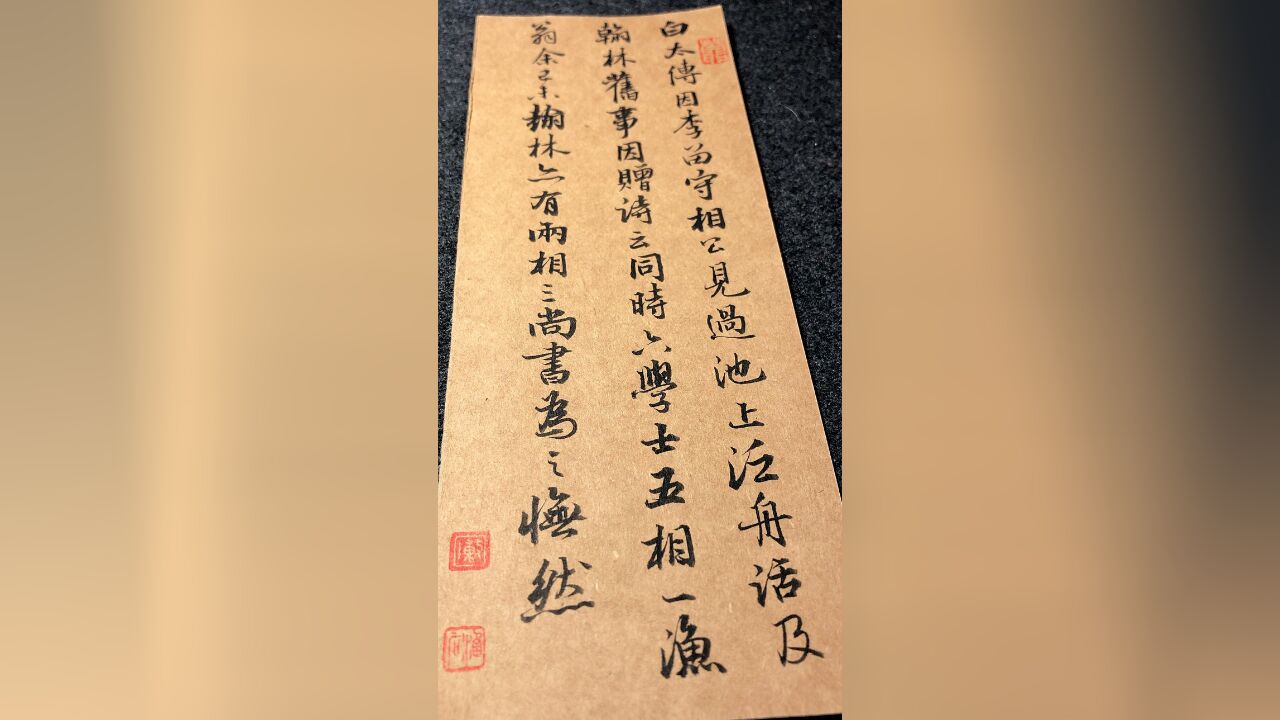 白太傅因李留守相公見過池上泛舟话及
翰林舊事因贈诗云同時六學士五相一漁
翁余己未翰林亦有兩相三尚書為之憮然